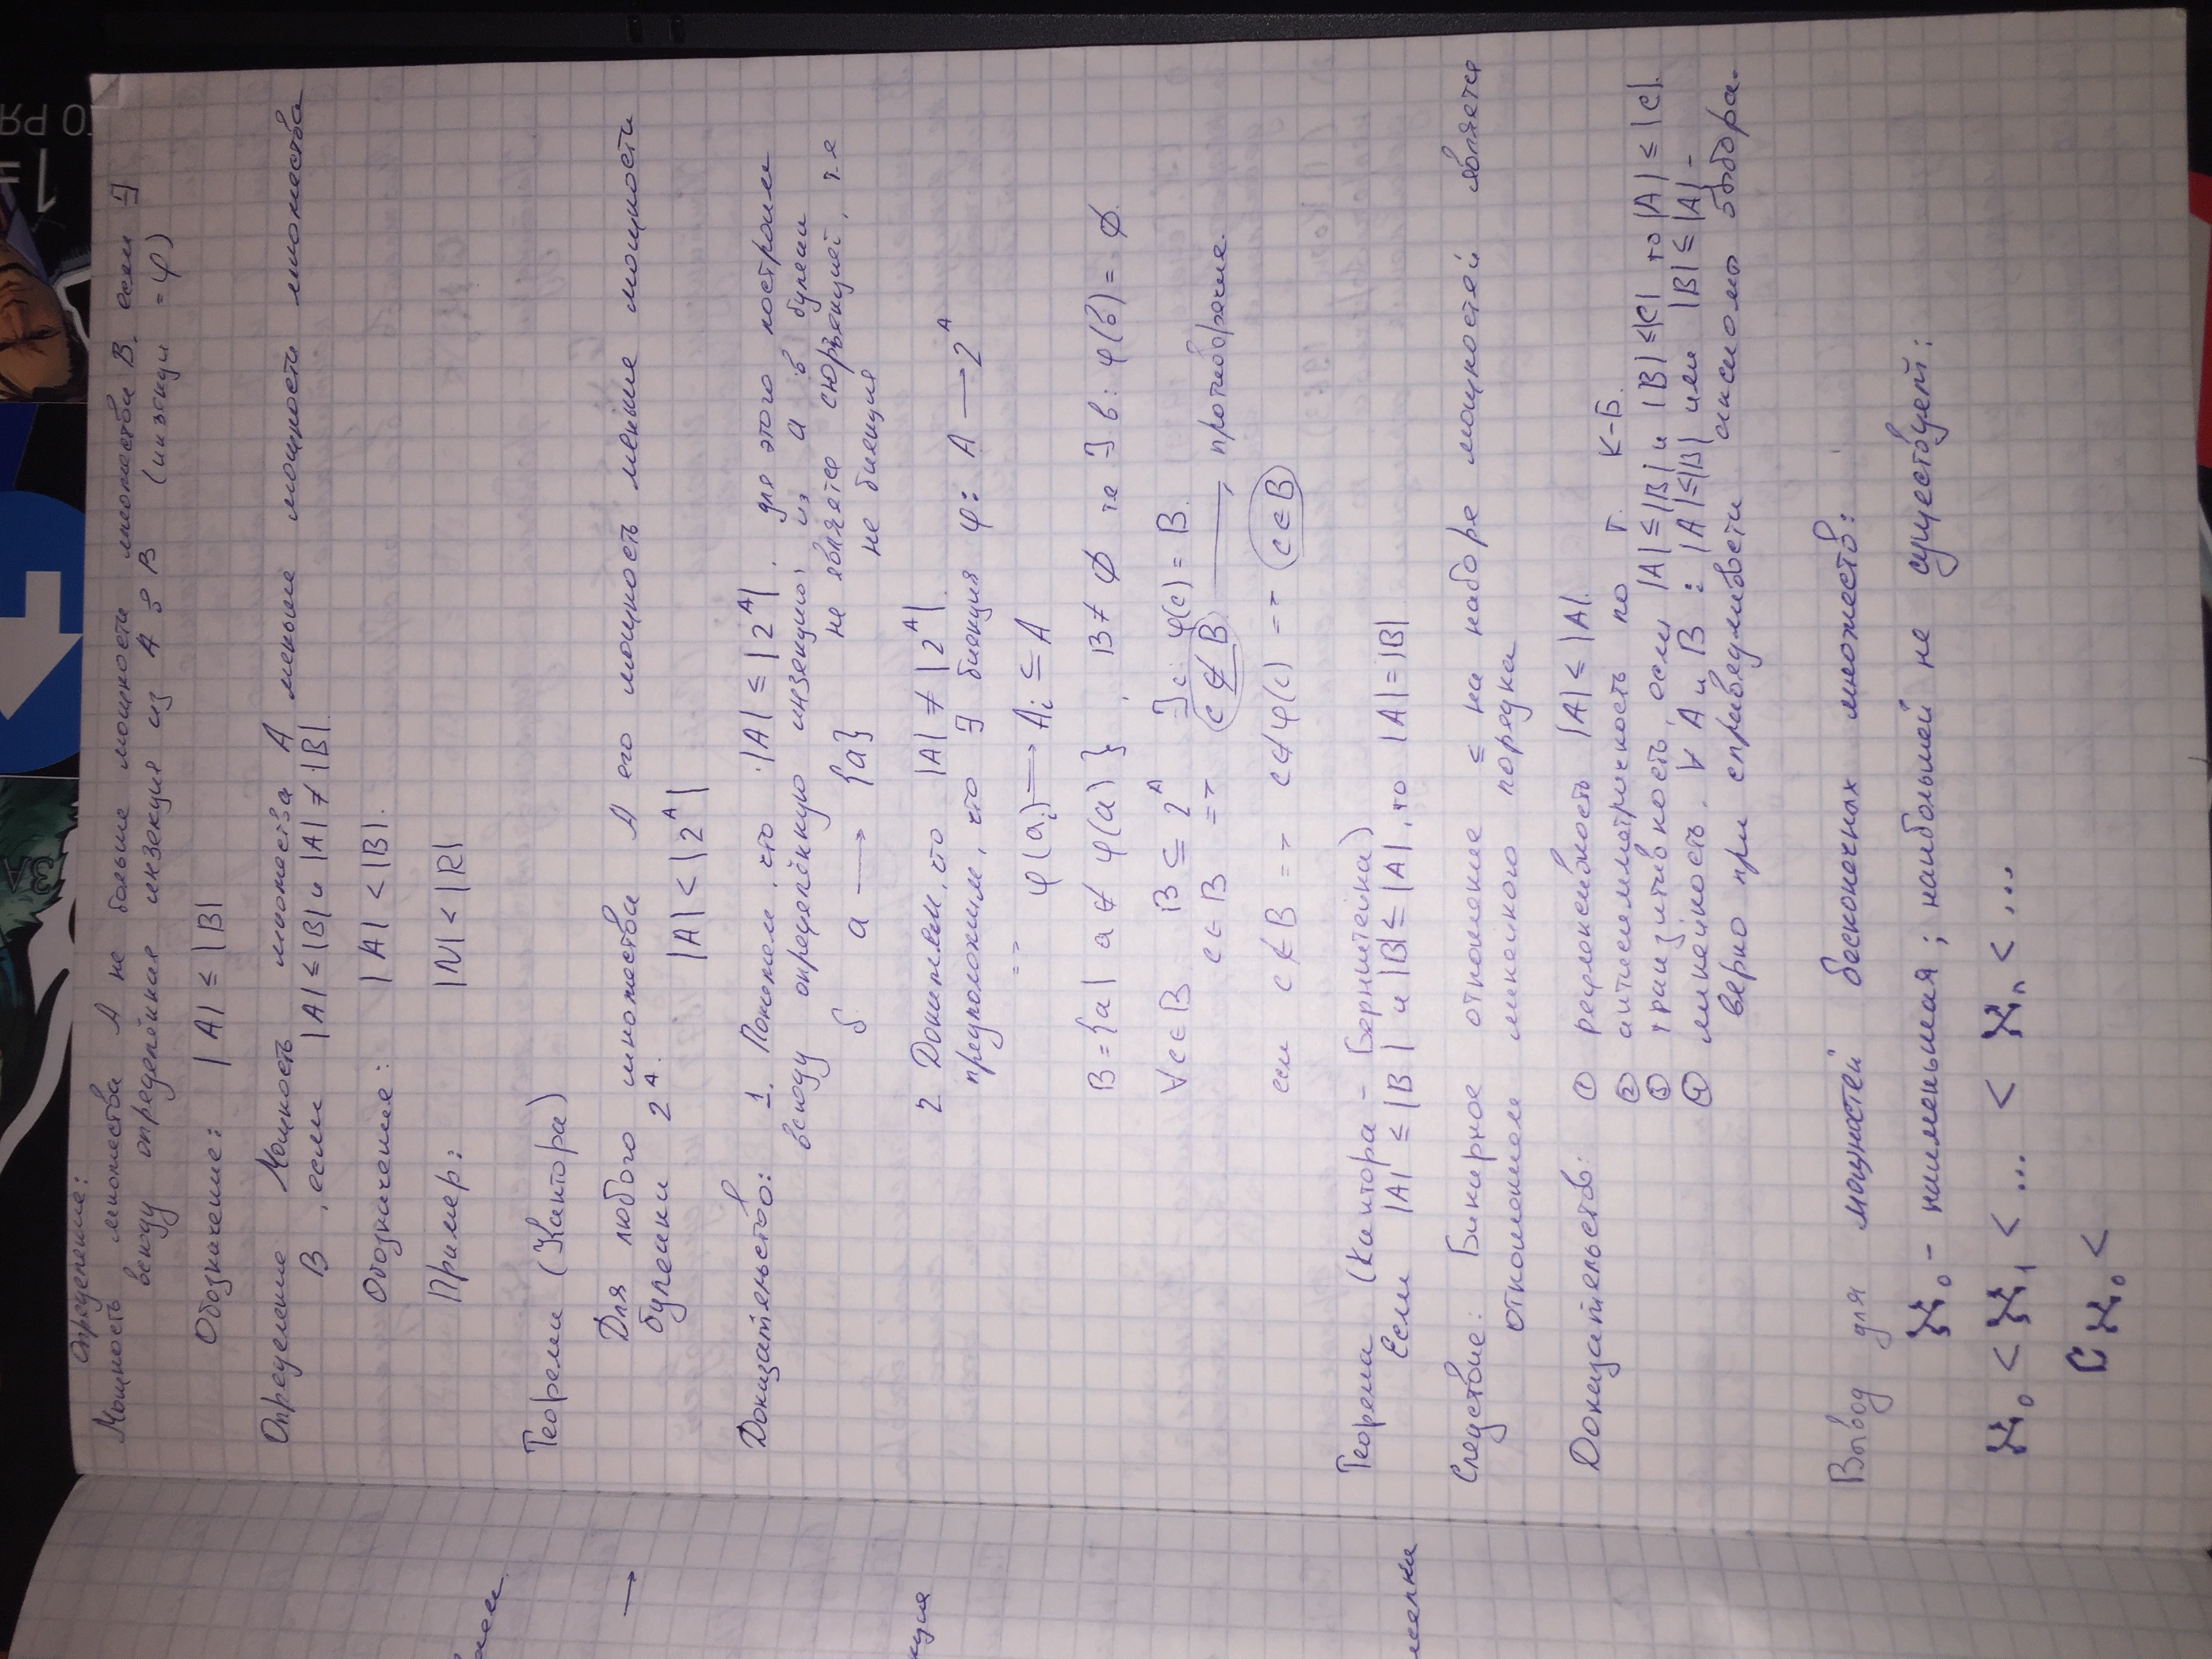 ЗА
1=
О РЯ
Определение:
Мощность множества A не больше мощности множества B, если ∃
всюду определённая инъекция из A в B (инъекци = φ)
Обозначение: |A| ≤ |B|
Определение Мощность множества A меньше мощности множества
B, если |A| ≤ |B| и |A| ≠ |B|.
Обозначение: |A| < |B|.
Пример: |N| < |R|
Теорема (Кантора)
Для любого множества A его мощность меньше мощности
булеана 2^A.
|A| < |2^A|
Доказательство: 1. Покажем, что |A| ≤ |2^A|, для этого построим
всюду определённую инъекцию из a в булеан
не является сюръекцией, т.е
б a → {a}
не биекция
2 Докажем, что |A| ≠ |2^A|.
предположим, что ∃ биекция φ: A → 2^A
=> φ(a_i) → A_i ⊆ A
B = {a | a ∉ φ(a)}, B ≠ ∅ те ∃ b: φ(b) = ∅.
∀c∈B B ⊆ 2^A ∃c: φ(c) = B.
c∈B => c ∉ B → противоречие.
если c ∉ B => c ∉ φ(c) => c∈B
Теорема (Кантора - Бернштейна)
Если |A| ≤ |B| и |B| ≤ |A|, то |A| = |B|
Следствие: Бинарное отношение ≤ на наборе мощностей является
отношением линейного порядка
Доказательств: ① рефлексивность |A| ≤ |A|.
② антисимметричность по т. К-Б.
③ транзитивность, если |A| ≤ |B| и |B| ≤ |C| то |A| ≤ |C|.
④ линейность. ∀ A и B : |A| ≤ |B| или |B| ≤ |A| -
верно при справедливости аксиомы выбора.
Вывод для мощностей бесконечных множеств:
ℵ₀ - наименьшая; наибольшей не существует:
ℵ₀ < ℵ₁ < ... < ℵₙ < ...
C ℵ₀ <